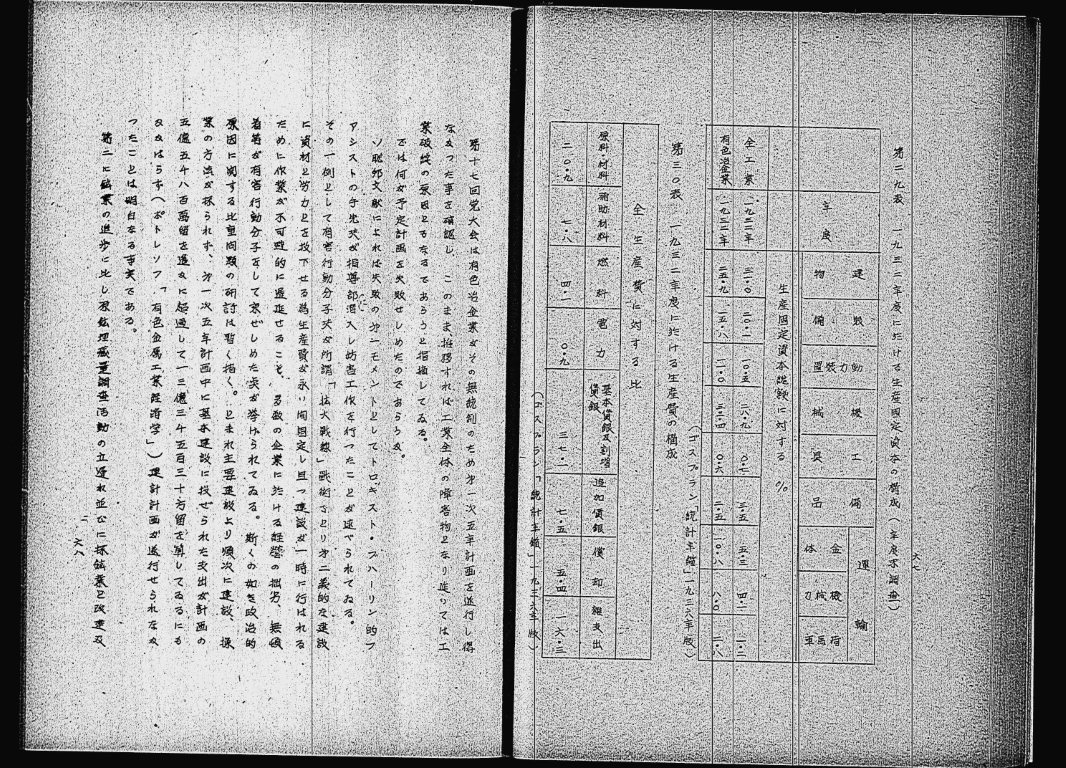 第二九表 一九三二年度に於ける生産固定資本の構成(年度末調査)
年度
生産固定資本総額に対する %
建物
設備
動力装置
機械
工具
備品
運輸
金体
機械力
荷馬車
全工業 一九三二年 三一・〇 二〇・二 一〇・五 二八・九 〇・七 二・五 五・三 四・二 一・二
有色冶金業 一九三二年 二五・九 一五・八 一一・〇 三三・四 〇・六 二・五 一〇・八 八・〇 二・八
(ゴスプラン「統計年鑑」一九三六年版)
第三〇表 一九三二年度に於ける生産費の構成
全生産費に対する比
原料・材料 補助材料 燃料 電力 基本賃銀及割増賃銀 追加賃銀 償却 雑支出
二〇・九 七・八 四・一 〇・九 三七・二 七・五 五・四 一六・三
(ゴスプラン「統計年鑑」一九三六年版)
六七
第十七回党大会は有色冶金業がその無統制のため第一次五年計画を遂行し得
なかつた事を確認し、このまま推移すれば工業全体の障害物となり延ひては工
業破綻の原因ともなるであらうと指摘してゐる。
では何が予定計画を失敗せしめたのであらうか。
ソ聯邦文献によれば失敗の第一モメントとしてトロキスト・ブハーリン的フ
アシストの手先共が指導部に潜入し妨害工作を行つたことが述べられてゐる。
その一例として有害行動分子共が所謂「拡大戦線」戦術をとり第二義的な建設
に資材と労力とを投下せる為生産費が永い間固定し且つ建設が一時に行はれる
ために作業が不可避的に遅延せること、多数の企業に於ける経営の拙劣、無規
を有害行動分子をして来せしめた点が挙げられてゐる。斯くの如き政治的
原因に関する比重問題の研討は暫く措く。ともあれ主要建設より順次に建設、操
業の方法が採られず、第一次五年計画中に基本建設に投ぜられた支出が計画の
五億五千八百万留を遥かに超過して一三億三千五百三十万留を算してゐるにも
かかはらず(ポトレソフ「有色金属工業経済学」)建計計画が遂行せられなか
つたことは明白なる事実である。
第二に鉱業の進歩に比し原鉱埋蔵量調査活動の立遅れ並びに採鉱業と改選及
二六八